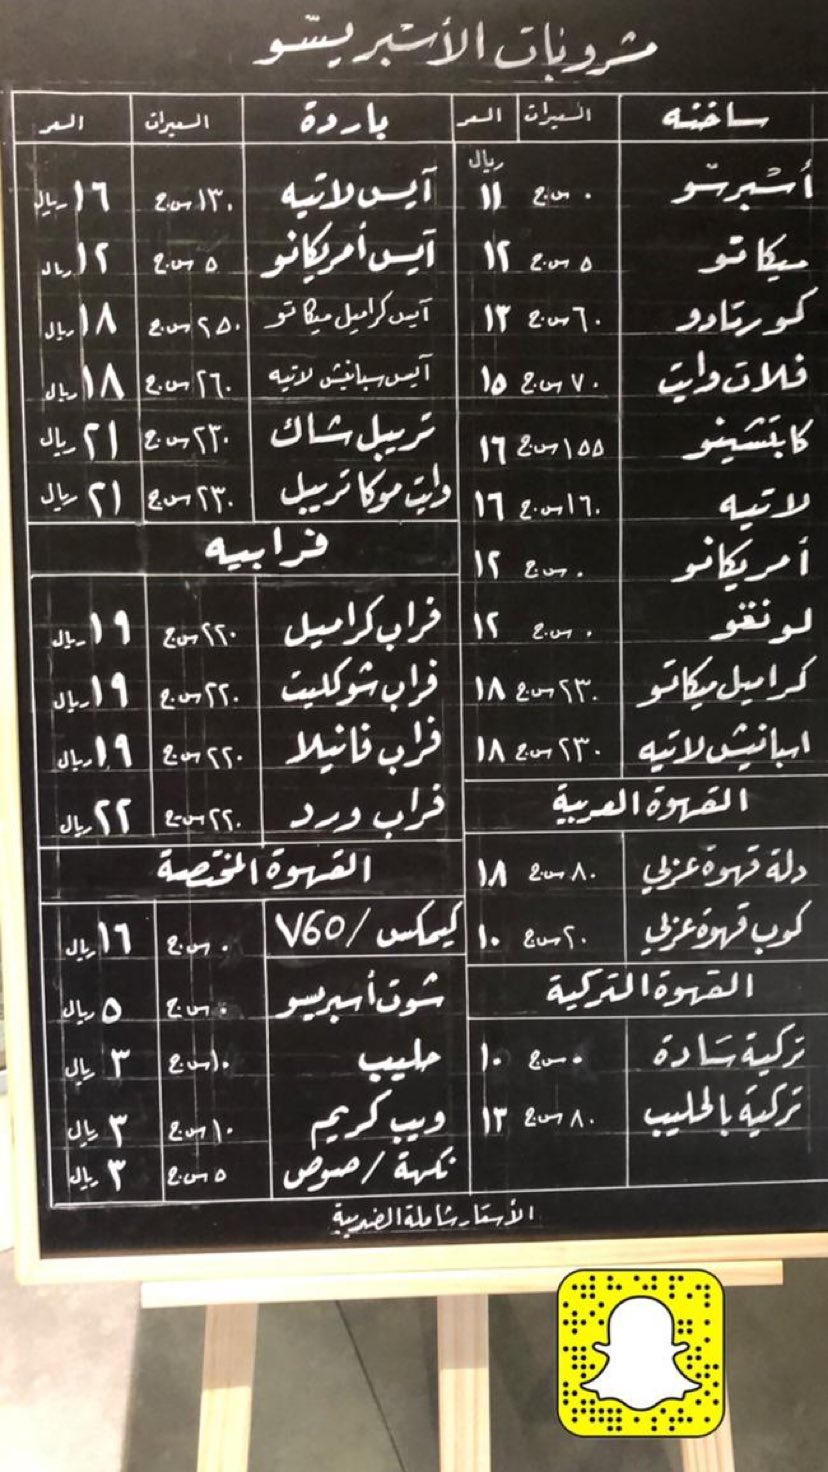 مشروبات الأسبريسّو
ساخنه السعرات السعر
ريال
أسْبرسّو ٠ س.ح ١١
ميكاتو ٥ س.ح ١٢
كورتادو ٦٠ س.ح ١٣
فلات وايت ٧٠ س.ح ١٥
كابتشينو ١٥٥ س.ح ١٦
لاتيه ١٦٠ س.ح ١٦
أمريكانو ٠ س.ح ١٢
لونغو ٠ س.ح ١٢
كراميل ميكاتو ٢٣٠ س.ح ١٨
اسبانيش لاتيه ٢٣٠ س.ح ١٨
القهوة العربية
دلة قهوة عزلي ٨٠ س.ح ١٨
كوب قهوة عزلي ٢٠ س.ح ١٠
القهوة التركية
تركية سَادة ٠ س.ح ١٠
تركية بالحليب ٨٠ س.ح ١٣
باردة السعيرات السعر
آيس لاتيه ١٣٠ س.ح ١٦ ريال
آيس أمريكانو ٥ س.ح ١٢ ريال
آيس كراميل ميكاتو ٢٥٠ س.ح ١٨ ريال
آيس سبانيش لاتيه ٢٦٠ س.ح ١٨ ريال
تريبل شاك ٢٣٠ س.ح ٢١ ريال
وايت موكا تريبل ٢٣٠ س.ح ٢١ ريال
فرابيه
فراب كراميل ٢٢٠ س.ح ١٩ ريال
فراب شوكليت ٢٢٠ س.ح ١٩ ريال
فراب فانيلا ٢٢٠ س.ح ١٩ ريال
فراب ورد ٢٢٠ س.ح ٢٢ ريال
القهوة المختصة
كيمكس / V60 ٠ س.ح ١٦ ريال
شوت أسبريسو ٠ س.ح ٥ ريال
حليب ١٠ س.ح ٣ ريال
ويب كريم ١٠ س.ح ٣ ريال
نكهة / صوص ٥ س.ح ٣ ريال
الأسعار شاملة الضريبة